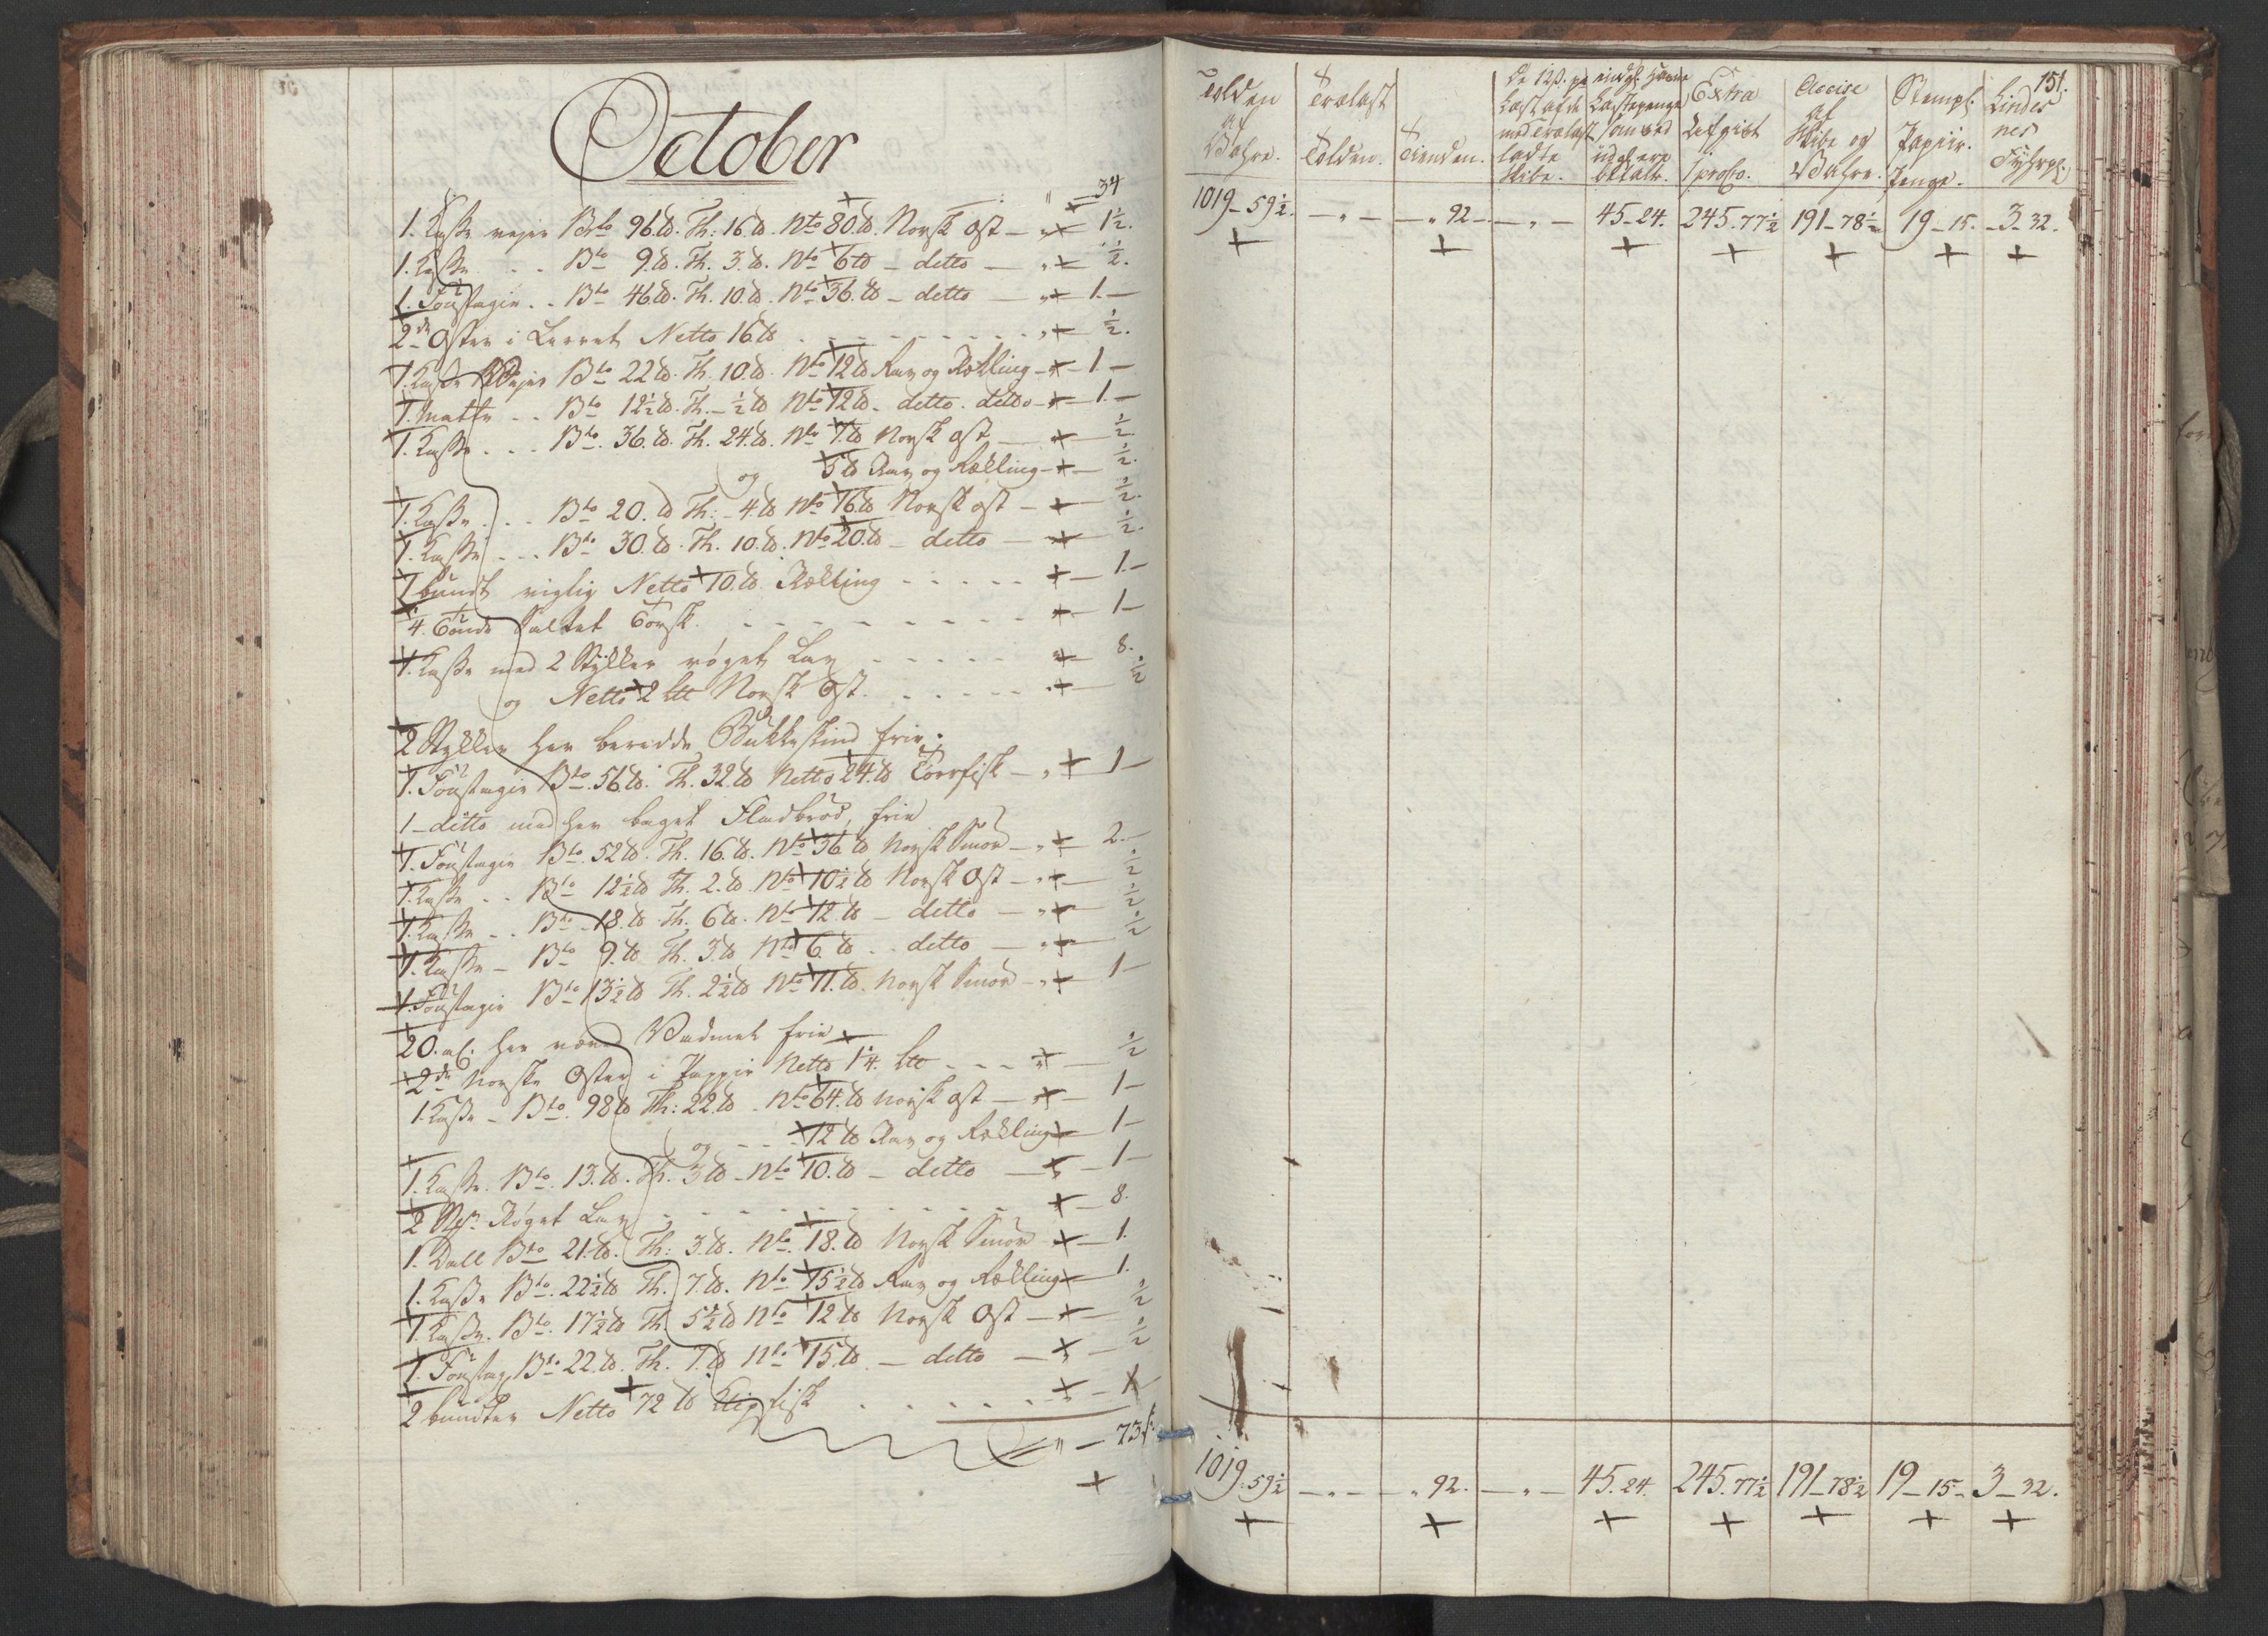 October
" 34
1. Kasse vejer Bto 96.℔. Th: 16℔. Nto 80.℔. Norsk Ost — " — 1½.
1. Kasse . . Bto 9.℔. Th. 3.℔. Nto 6℔ — ditto — " — ½.
1. Foustagie . . Bto 46.℔. Th. 10.℔. Nto 36.℔ — ditto — " — 1. —
2de Oster i Lerret Netto 16℔ . . . . . . . " — ½.
1. Kasse Vejer Bto 22℔. Th. 10.℔. Nto 12℔ Rav og Rækling — " — 1 —
1. Matte . . Bto 12½℔. Th. — ½℔ Nto 12℔. ditto. ditto — " — 1. —
1. Kasse . . . Bto. 36.℔. Th. 24.℔. Nto 7.℔ Norsk Ost — " — ½.
og 5℔ Rav og Rækling — " — ½.
1. Kasse . . . Bto 20.℔ Th: — 4.℔ Nto 16.℔ Norsk Ost — " — ½.
1. Kasse . . . Bto 30.℔. Th. 10.℔. Nto 20.℔ — ditto — " — ½.
1 bundt Netto 10.℔. Rækling . . . . . " — 1. —
4. Tønde Saltet Torsk. . . . . . . . . " — 1 —
1. Kasse med 2 Stykker røget Lax . . . . . " — 8.
og Netto 2 ℔ Norsk Ost . . . . . . " — ½
2 Stykker her beredde Bukkeskind frie.
1. Foustagie Bto. 56.℔. Th. 32.℔ Netto 24.℔ Tørrfisk — " — 1 —
1 — ditto med her baget Fladbrød, frie
1. Foustagie Bto. 52℔. Th. 16.℔. Nto 36 ℔ Norsk Smør — " — 2. —
1. Kasse . . Bto 12½℔ Th. 2.℔. Nto 10½℔ Norsk Ost — " — ½
1. Kasse . . Bto 18.℔ Th. 6℔. Nto 12.℔ — ditto — " — ½
1. Kasse — Bto 9.℔ Th. 3.℔ Nto 6.℔ . . ditto — " — ½
1. Foustagie Bto 13½℔ Th. 2½℔ Nto 11.℔. Norsk Smør — " — 1 —
20. al. her Vadmel frie
2de Norske Oster i Pappir Netto 14. ℔ . . . " — ½
1. Kasse — Bto. 98℔ Th: 22.℔ — Nto 64.℔ Norsk Ost — " — 1 —
og . . . 12℔ Rav og Rækling — 1 —
1. Kasse. Bto. 13.℔. Th. 3℔ — Nto 10.℔ — ditto — " — 1 —
2 Røget Lax . . . . . . . . — 8.
1. Dall Bto 21.℔. Th: 3.℔. Nto. 18.℔ Norsk Smør — 1.
1. Kasse Bto. 22½℔ Th. 7.℔. Nto 15½℔ Rav og Rækling — 1.
1. Kasse. Bto. 17½℔ Th. 5½℔ Nto 12℔ Norsk Ost — " — ½
1. Foustag. Bto 22.℔. Th. 7.℔ Nto 15.℔. — ditto — " — ½
2 bundter Netto 72 ℔ Klipfisk . . . . . . " —
" — 73
151.
Tolden af Vahre.
Trælast Tolden.
Tienden.
De 12ß. pr Læst af de med Trælast ladte Skibe.
Lastepenge
Extra Afgivt
Accise af Skibe og Vahre.
Stempl. Papiir. Penge.
Lindesnes Fyhrp.
1019 — 59½. — " — — " 92 — — " — 45 — 24. 245. 77½ 191 — 78½ 19 — 15. — 3 — 32.
1019. 59½ — " — — " 92. — " — 45. 24. 245. 77½ 191 — 78½ 19 — 15 — 3 — 32.